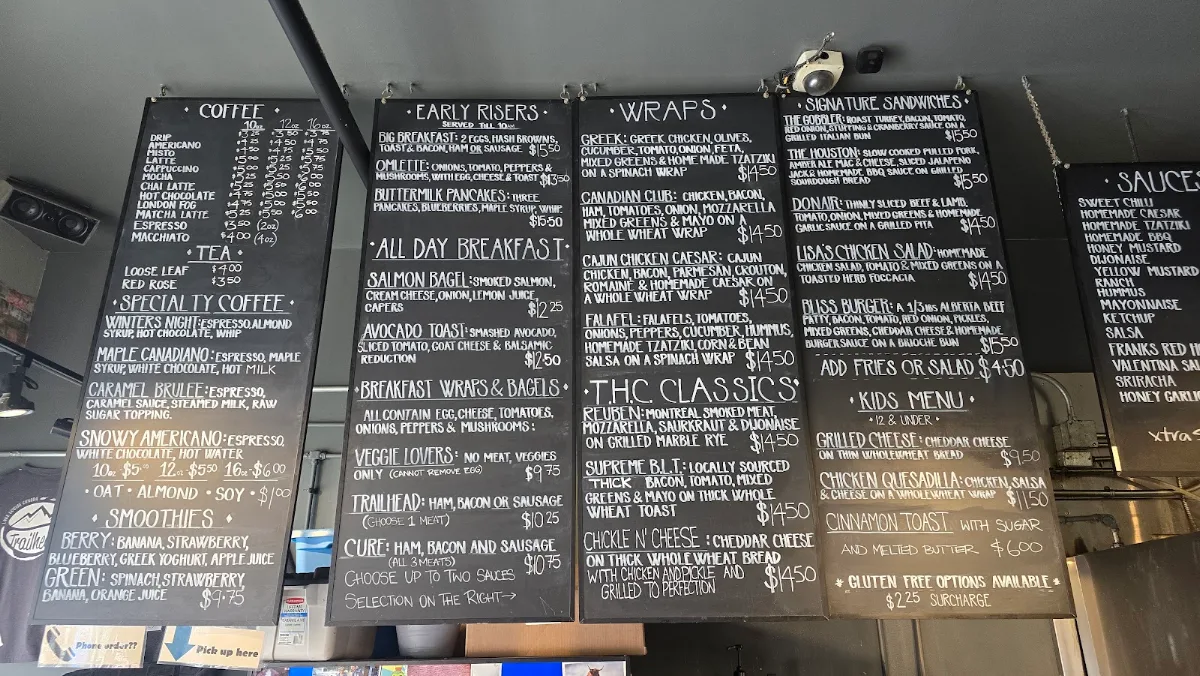 COFFEE
10oz 12oz 16oz
DRIP $3.25 $3.50 $3.75
AMERICANO
MISTO
LATTE
CAPPUCCINO
MOCHA
CHAI LATTE
HOT CHOCOLATE
LONDON FOG
MATCHA LATTE $5.25 $5.50 $6.00
ESPRESSO $3.50 (2oz)
MACCHIATO $4.00 (4oz)
TEA
LOOSE LEAF $4.00
RED ROSE $3.50
SPECIALTY COFFEE
WINTERS NIGHT: ESPRESSO, ALMOND
SYRUP, HOT CHOCOLATE, WHIP
MAPLE CANADIANO: ESPRESSO, MAPLE
SYRUP, WHITE CHOCOLATE, HOT MILK
CARAMEL BRULEE: ESPRESSO,
CARAMEL SAUCE, STEAMED MILK, RAW
SUGAR TOPPING.
SNOWY AMERICANO: ESPRESSO,
WHITE CHOCOLATE, HOT WATER
10oz $5.00 12oz $5.50 16oz $6.00
• OAT • ALMOND • SOY • $1.00
• SMOOTHIES •
BERRY: BANANA, STRAWBERRY,
BLUEBERRY, GREEK YOGHURT, APPLE JUICE
GREEN: SPINACH, STRAWBERRY,
BANANA, ORANGE JUICE $9.75
Phone order??
Pick up here
• EARLY RISERS •
SERVED TILL 10am
BIG BREAKFAST: 2 EGGS, HASH BROWNS,
TOAST & BACON, HAM OR SAUSAGE $15.50
OMLETTE: ONIONS, TOMATO, PEPPERS &
MUSHROOMS, WITH EGG, CHEESE & TOAST $13.50
BUTTERMILK PANCAKES: THREE
PANCAKES, BLUEBERRIES, MAPLE SYRUP, WHIP
$15.50
• ALL DAY BREAKFAST •
SALMON BAGEL: SMOKED SALMON,
CREAM CHEESE, ONION, LEMON JUICE
CAPERS $12.25
AVOCADO TOAST: SMASHED AVOCADO,
SLICED TOMATO, GOAT CHEESE & BALSAMIC
REDUCTION $12.50
• BREAKFAST WRAPS & BAGELS •
ALL CONTAIN EGG, CHEESE, TOMATOES,
ONIONS, PEPPERS & MUSHROOMS:
VEGGIE LOVERS: NO MEAT, VEGGIES
ONLY (CANNOT REMOVE EGG) $9.75
TRAILHEAD: HAM, BACON OR SAUSAGE
(CHOOSE 1 MEAT) $10.25
CURE: HAM, BACON AND SAUSAGE
(ALL 3 MEATS) $10.75
CHOOSE UP TO TWO SAUCES
SELECTION ON THE RIGHT→
• WRAPS •
GREEK: GREEK CHICKEN, OLIVES,
CUCUMBER, TOMATO, ONION, FETA,
MIXED GREENS & HOME MADE TZATZIKI
ON A SPINACH WRAP $14.50
CANADIAN CLUB: CHICKEN, BACON,
HAM, TOMATOES, ONION, MOZZARELLA
MIXED GREENS & MAYO ON A
WHOLE WHEAT WRAP $14.50
CAJUN CHICKEN CAESAR: CAJUN
CHICKEN, BACON, PARMESAN, CROUTON,
ROMAINE & HOMEMADE CAESAR ON
A WHOLE WHEAT WRAP $14.50
FALAFEL: FALAFELS, TOMATOES,
ONIONS, PEPPERS, CUCUMBER, HUMMUS,
HOMEMADE TZATZIKI, CORN & BEAN
SALSA ON A SPINACH WRAP $14.50
• T.H.C. CLASSICS •
REUBEN: MONTREAL SMOKED MEAT,
MOZZARELLA, SAURKRAUT & DIJONAISE
ON GRILLED MARBLE RYE $14.50
SUPREME B.L.T.: LOCALLY SOURCED
THICK BACON, TOMATO, MIXED
GREENS & MAYO ON THICK WHOLE
WHEAT TOAST $14.50
CHICKLE N' CHEESE: CHEDDAR CHEESE
ON THICK WHOLE WHEAT BREAD
WITH CHICKEN AND PICKLE AND
GRILLED TO PERFECTION $14.50
• SIGNATURE SANDWICHES •
THE GOBBLER: ROAST TURKEY, BACON, TOMATO,
RED ONION, STUFFING & CRANBERRY SAUCE ON A
GRILLED ITALIAN BUN $15.50
THE HOUSTON: SLOW COOKED PULLED PORK,
AMBER ALE MAC & CHEESE, SLICED JALAPENO
JACK & HOMEMADE BBQ SAUCE ON GRILLED
SOURDOUGH BREAD $15.50
DONAIR: THINLY SLICED BEEF & LAMB,
TOMATO, ONION, MIXED GREENS & HOMEMADE
GARLIC SAUCE ON A GRILLED PITA $14.50
LISA'S CHICKEN SALAD: HOMEMADE
CHICKEN SALAD, TOMATO & MIXED GREENS ON A
TOASTED HERB FOCCACIA $14.50
BLISS BURGER: A 1/3 lbs ALBERTA BEEF
PATTY, BACON, TOMATO, RED ONION, PICKLES,
MIXED GREENS, CHEDDAR CHEESE & HOMEMADE
BURGER SAUCE ON A BRIOCHE BUN $15.50
ADD FRIES OR SALAD $4.50
• KIDS MENU •
• 12 & UNDER •
GRILLED CHEESE: CHEDDAR CHEESE
ON THIN WHOLEWHEAT BREAD $9.50
CHICKEN QUESADILLA: CHICKEN, SALSA
& CHEESE ON A WHOLEWHEAT WRAP $11.50
CINNAMON TOAST WITH SUGAR
AND MELTED BUTTER $6.00
* GLUTEN FREE OPTIONS AVAILABLE *
$2.25 SURCHARGE
• SAUCES
SWEET CHILI
HOMEMADE CAESAR
HOMEMADE TZATZIKI
HOMEMADE BBQ
HONEY MUSTARD
DIJONAISE
YELLOW MUSTARD
RANCH
HUMMUS
MAYONNAISE
KETCHUP
SALSA
FRANKS RED
VALENTINA
SRIRACHA
HONEY GARLIC